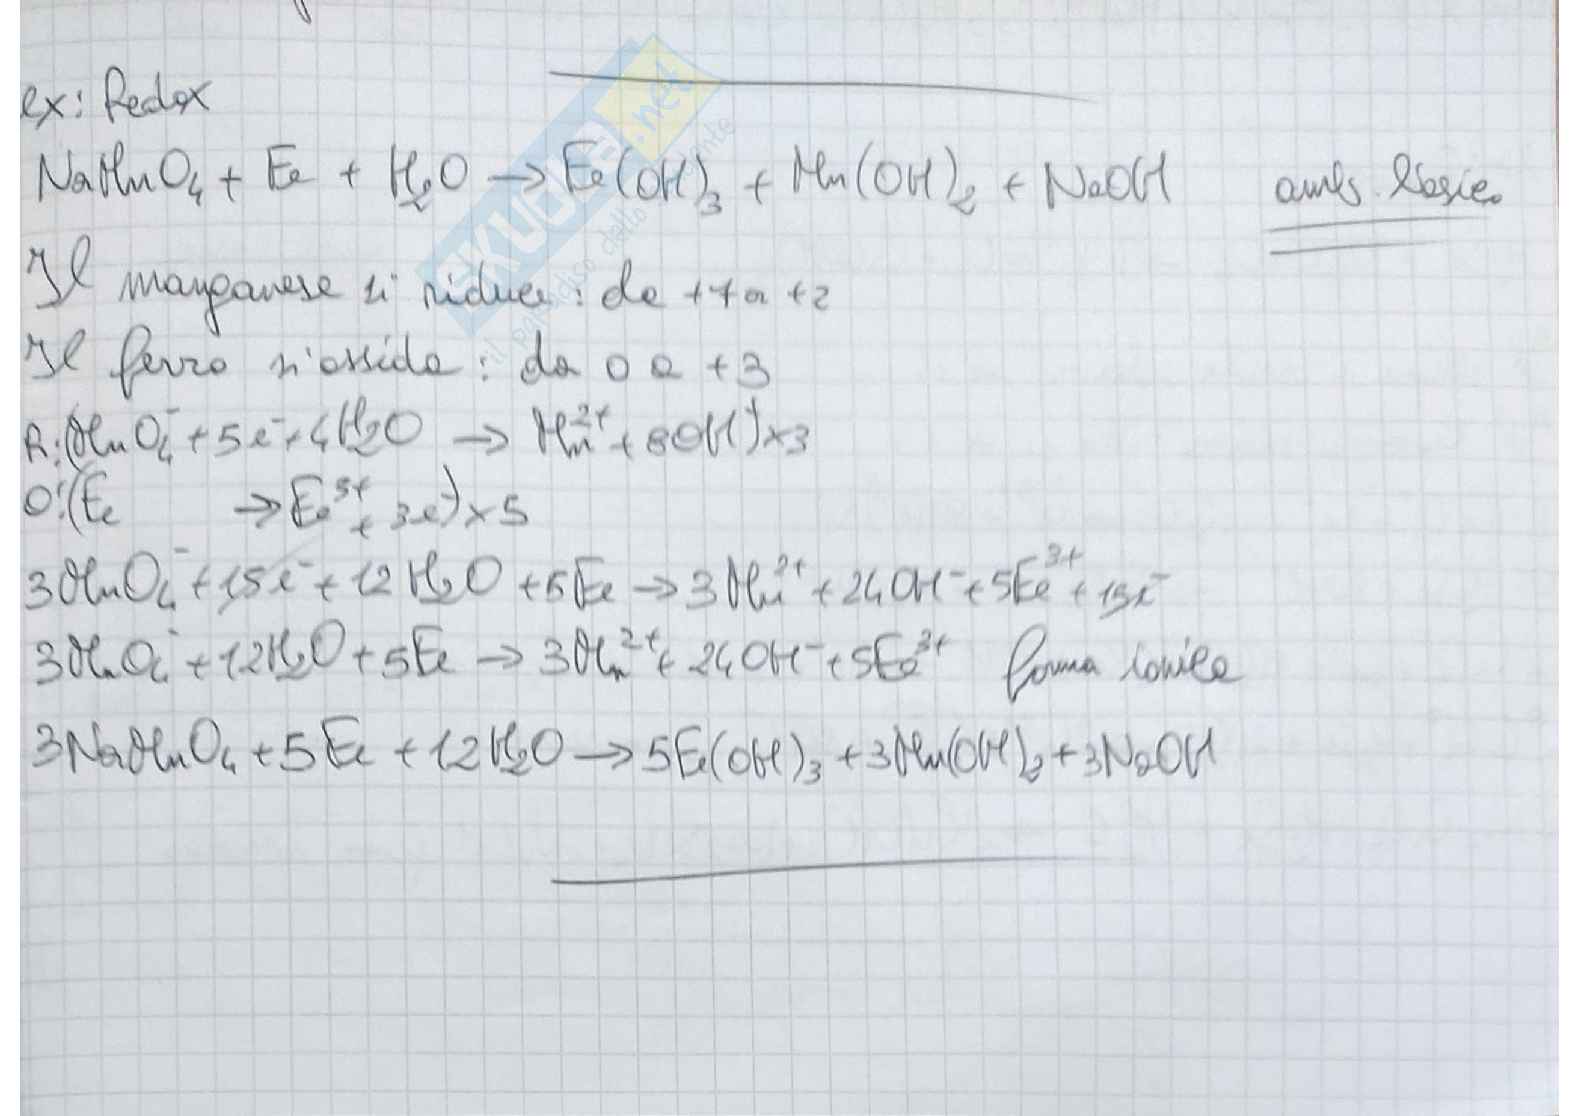 ex: Redox
NaMnO₄ + Fe + H₂O → Fe(OH)₃ + Mn(OH)₂ + NaOH amb. basico
Il manganese si riduce: da +7 a +2
Il ferro s'ossida: da 0 a +3
R: (MnO₄⁻ + 5e⁻ + 4H₂O → Mn²⁺ + 8OH⁻) x3
O: (Fe → Fe³⁺ + 3e⁻) x5
3MnO₄⁻ + 15e⁻ + 12H₂O + 5Fe → 3Mn²⁺ + 24OH⁻ + 5Fe³⁺ + 15e⁻
3MnO₄⁻ + 12H₂O + 5Fe → 3Mn²⁺ + 24OH⁻ + 5Fe³⁺ forma ionica
3NaMnO₄ + 5Fe + 12H₂O → 5Fe(OH)₃ + 3Mn(OH)₂ + 3NaOH
SKUOLA.net
il paradiso dello studente